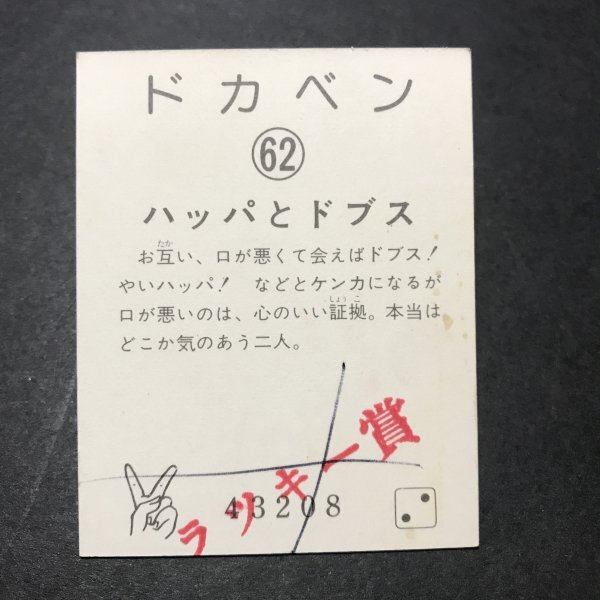 ドカベン
62
ハッパとドブス
お互い、口が悪くて会えばドブス！
たか
やいハッパ！　などとケンカになるが
口が悪いのは、心のいい証拠。本当は
しょうこ
どこか気のあう二人。
ラッキー賞
43208